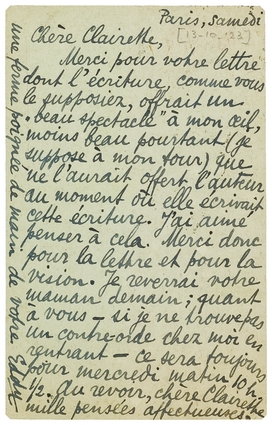 Paris, samedi
[13-10-'23]
Chère Clairette,
Merci pour votre lettre
dont l'écriture, comme vous
le supposiez, offrait un
"beau spectacle" à mon œil,
moins beau pourtant (je
suppose à mon tour) que
ne l'aurait offert l'auteur
au moment où elle écrivait
cette écriture. J'ai aimé
penser à cela. Merci donc
pour la lettre et pour la
vision. Je reverrai votre
maman demain; quant
à vous - si je ne trouve pas
un contre-ordre chez moi en
rentrant - ce sera toujours
pour mercredi matin 10 h
1/2. Au revoir, chère Clairette
mille pensées affectueuses.
une bonne poignée de main de votre